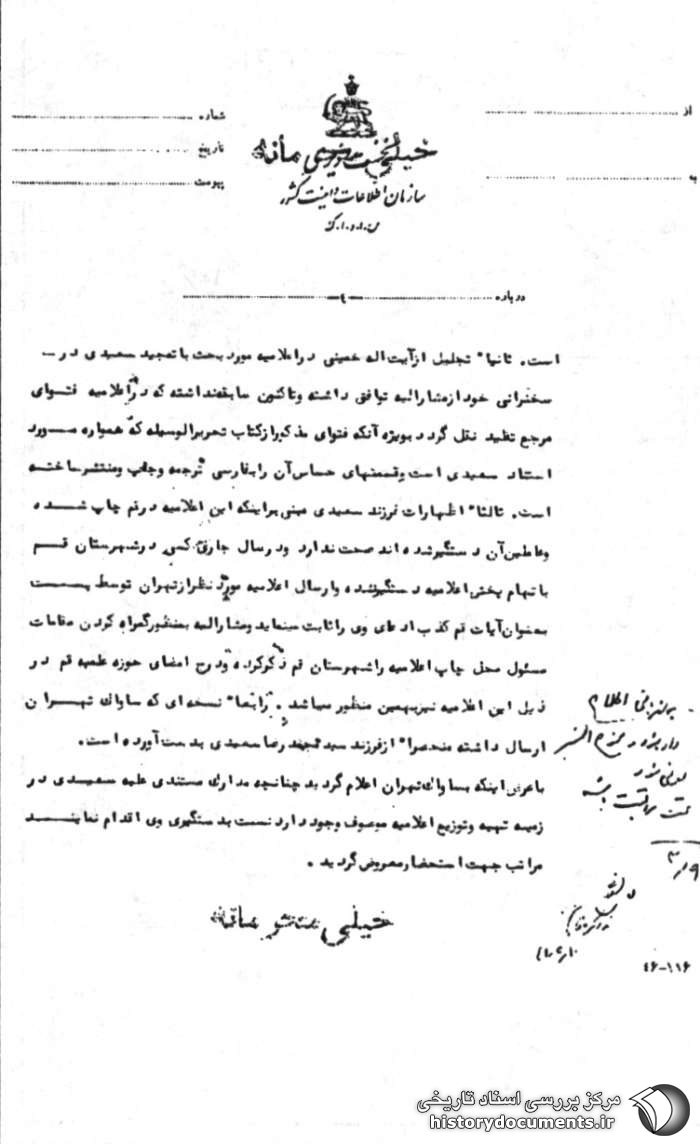 از
به
شماره
تاریخ
پیوست
خیلی محرمانه
سازمان اطلاعات و امنیت کشور
س.ا.و.ا.ک
درباره
-٤-
است. ثانیا" تجلیل از آیت اله خمینی در اعلامیه مورد بحث با تمجید سعیدی در
سخنرانی خود از مشارالیه توافق داشته و تاکنون سابقه نداشته که در اعلامیه فتوای
مرجع تقلید نقل گردد بویژه آنکه فتوای مذکور از کتاب تحریرالوسیله که همواره مورد
استناد سعیدی است و قسمتهای حساس آن را بفارسی ترجمه و چاپ و منتشر ساخته
است. ثالثا" اظهارات فرزند سعیدی مبنی بر اینکه این اعلامیه در قم چاپ شده
و عاملین آن دستگیر شده اند صحت ندارد و در سال جاری کسی در شهرستان قم
با تهام پخش اعلامیه دستگیر نشده و ارسال اعلامیه مورد نظر از تهران توسط پست
بعنوان آیات قم کذب ادعای وی را ثابت مینماید و مشارالیه بمنظور گمراه کردن مقامات
مسئول محل چاپ اعلامیه را شهرستان قم ذکر کرده و درج امضای حوزه علمیه قم در
ذیل این اعلامیه نیز بهمین منظور میباشد. رابعا" نسخه ای که ساواک تهران
ارسال داشته منحصرا" از فرزند سید محمد رضا سعیدی بدست آورده است.
با عرض اینکه بساواک تهران اعلام گردید چنانچه مدارک مستندی علیه سعیدی در
زمینه تهیه و توزیع اعلامیه موصوف وجود دارد نسبت بدستگیری وی اقدام نمایند
مراتب جهت استحضار معروض گردید.
خیلی محرمانه
٤٦-١١٦
مرکز بررسی اسناد تاریخی
historydocuments.ir